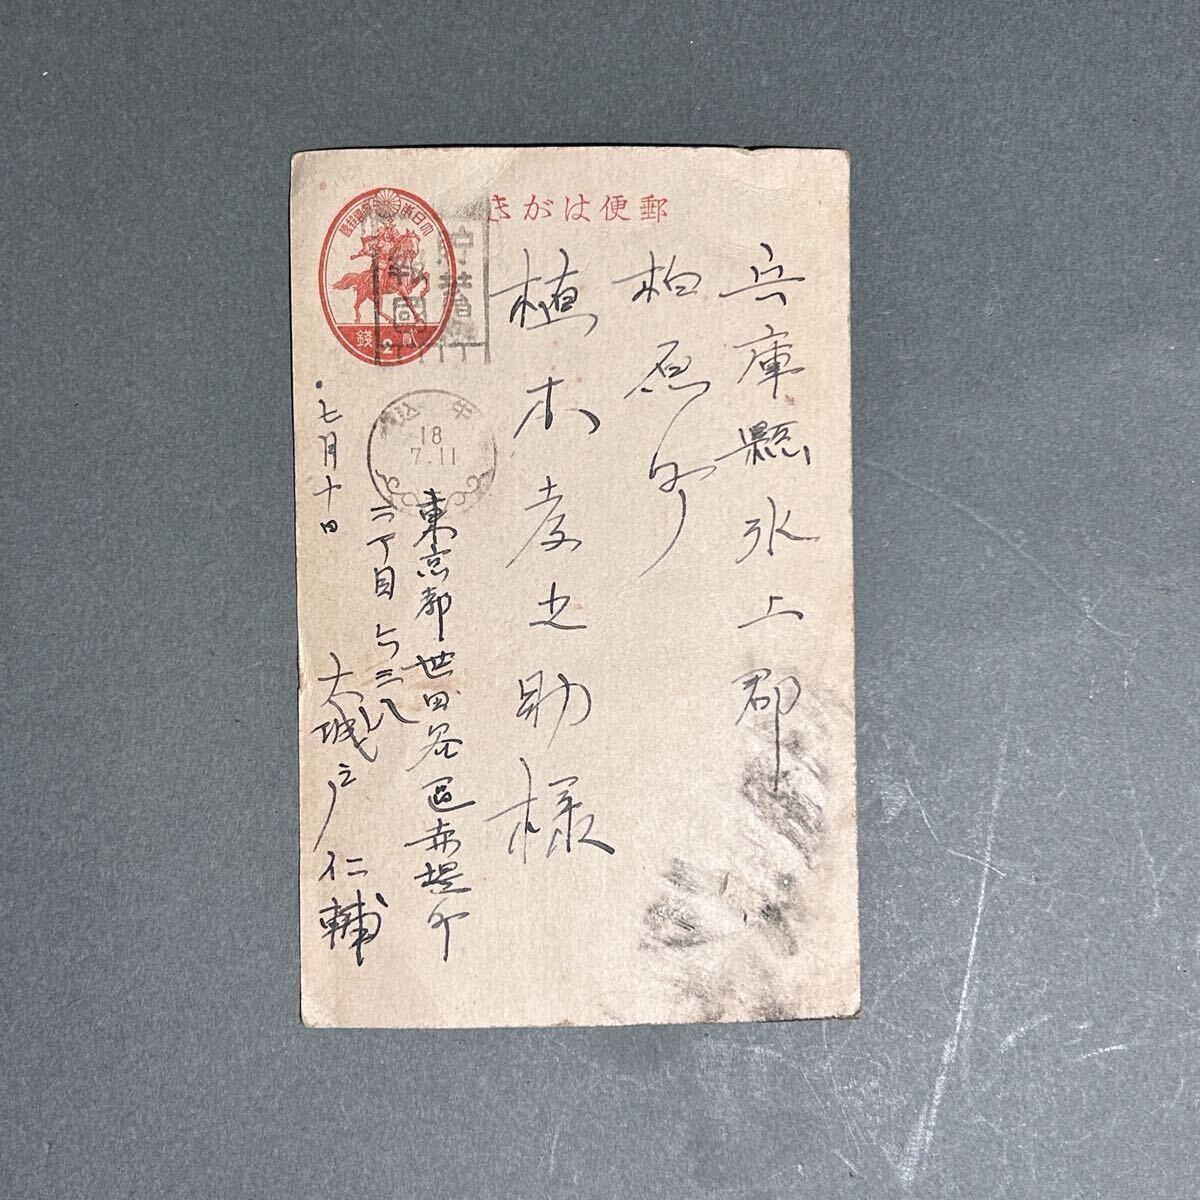 郵便はがき
大日本帝國郵便
貳錢
2
貯蓄
報國
牛込
18
7.11
兵庫縣氷上郡
柏原町
植木孝之助様
東京都世田谷區赤堤町
二丁目六三八
大城戸仁輔
七月十日